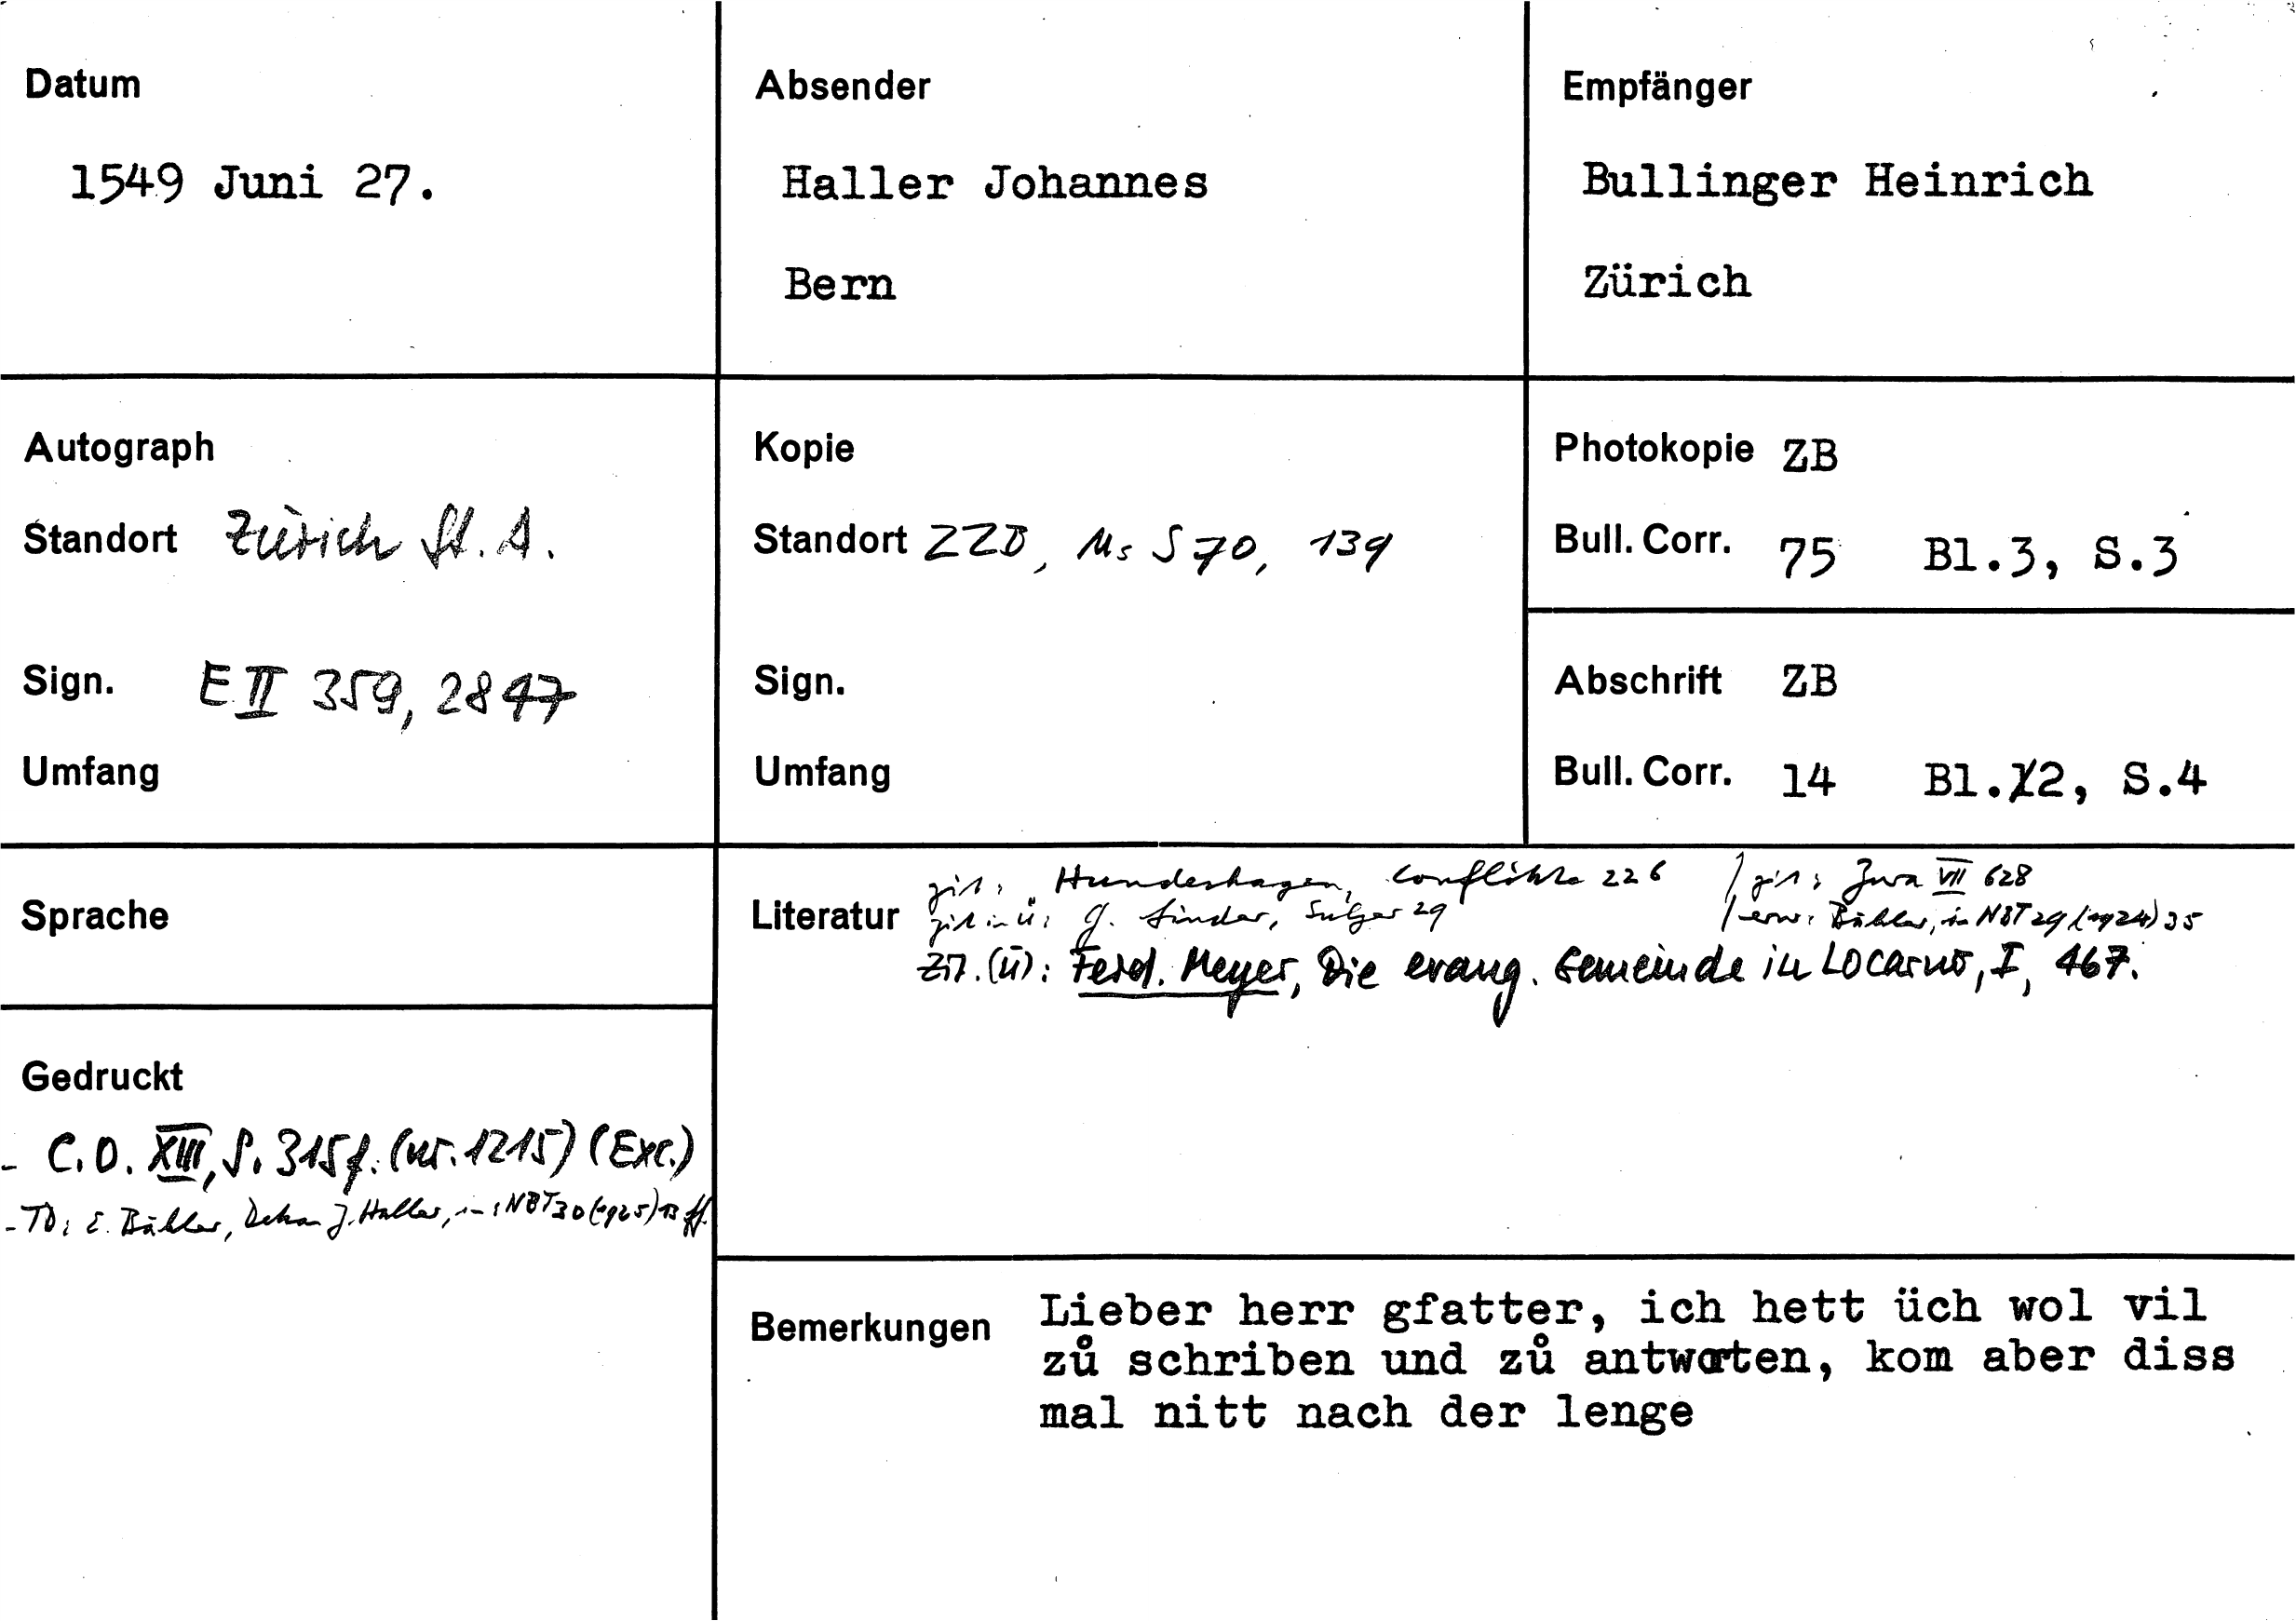 Datum
1549 Juni 27.
Absender
Haller Johannes
Bern
Empfänger
Bullinger Heinrich
Zürich
Autograph
Standort Zürich St. A.
Sign. E II 359, 2847
Umfang
Kopie
Standort ZZB, Ms S 70, 139
Sign.
Umfang
Photokopie ZB
Bull. Corr. 75 Bl.3, S.3
Abschrift ZB
Bull. Corr. 14 Bl.12, S.4
Sprache
Gedruckt
- C.O. XIII, S. 315f. (nr. 1215) (Exc.)
- TD: E. Bähler, Dekan J. Haller, in: NBT 30 (1925) 13 ff.
Literatur
zit: Hundeshagen, Conflikte 226
zit. in Ü: G. Linder, Sulzer 29
/ zit: Zwa VII 628
/ erw: Bähler, in NBT 29 (1924) 35
Zit. (Ü): Ferd. Meyer, Die evang. Gemeinde in Locarno, I, 467.
Bemerkungen
Lieber herr gfatter, ich hett üch wol vil
zů schriben und zů antworten, kom aber diss
mal nitt nach der lenge